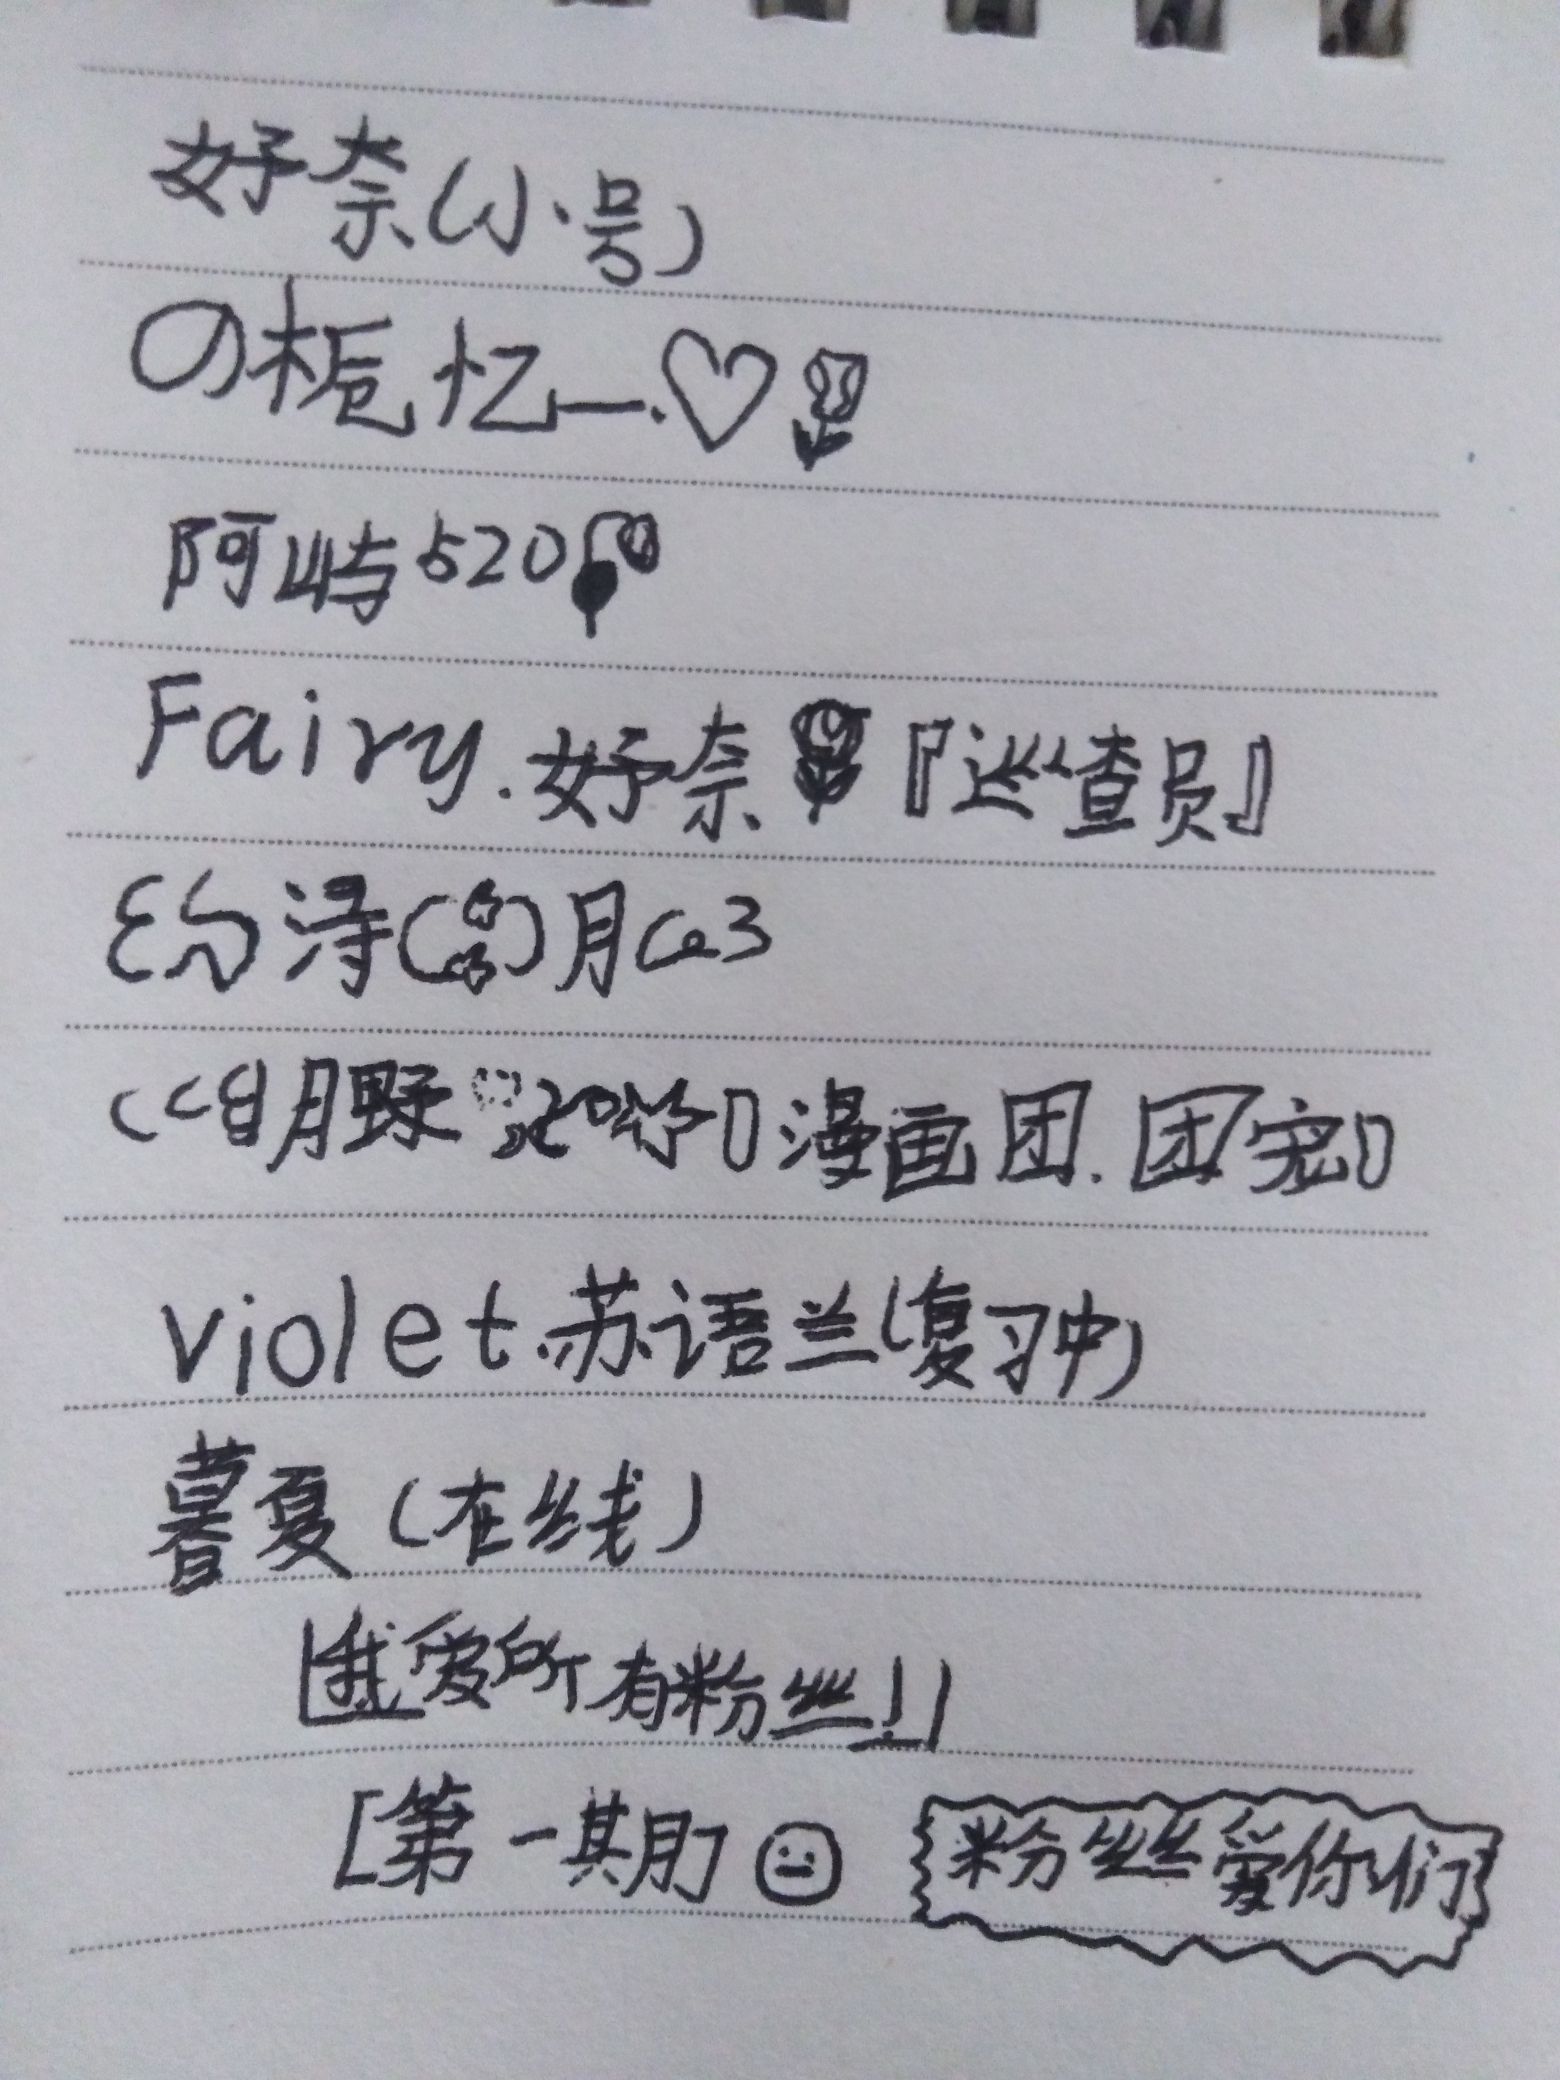 妤奈(小号)
の栀忆一.♡
阿屿520
Fairy.妤奈『巡查员』
浔( )月
漫画团.团宠
violet.苏语兰(复习中)
暮夏(在线)
我爱所有粉丝!
[第一期]
粉丝爱你们